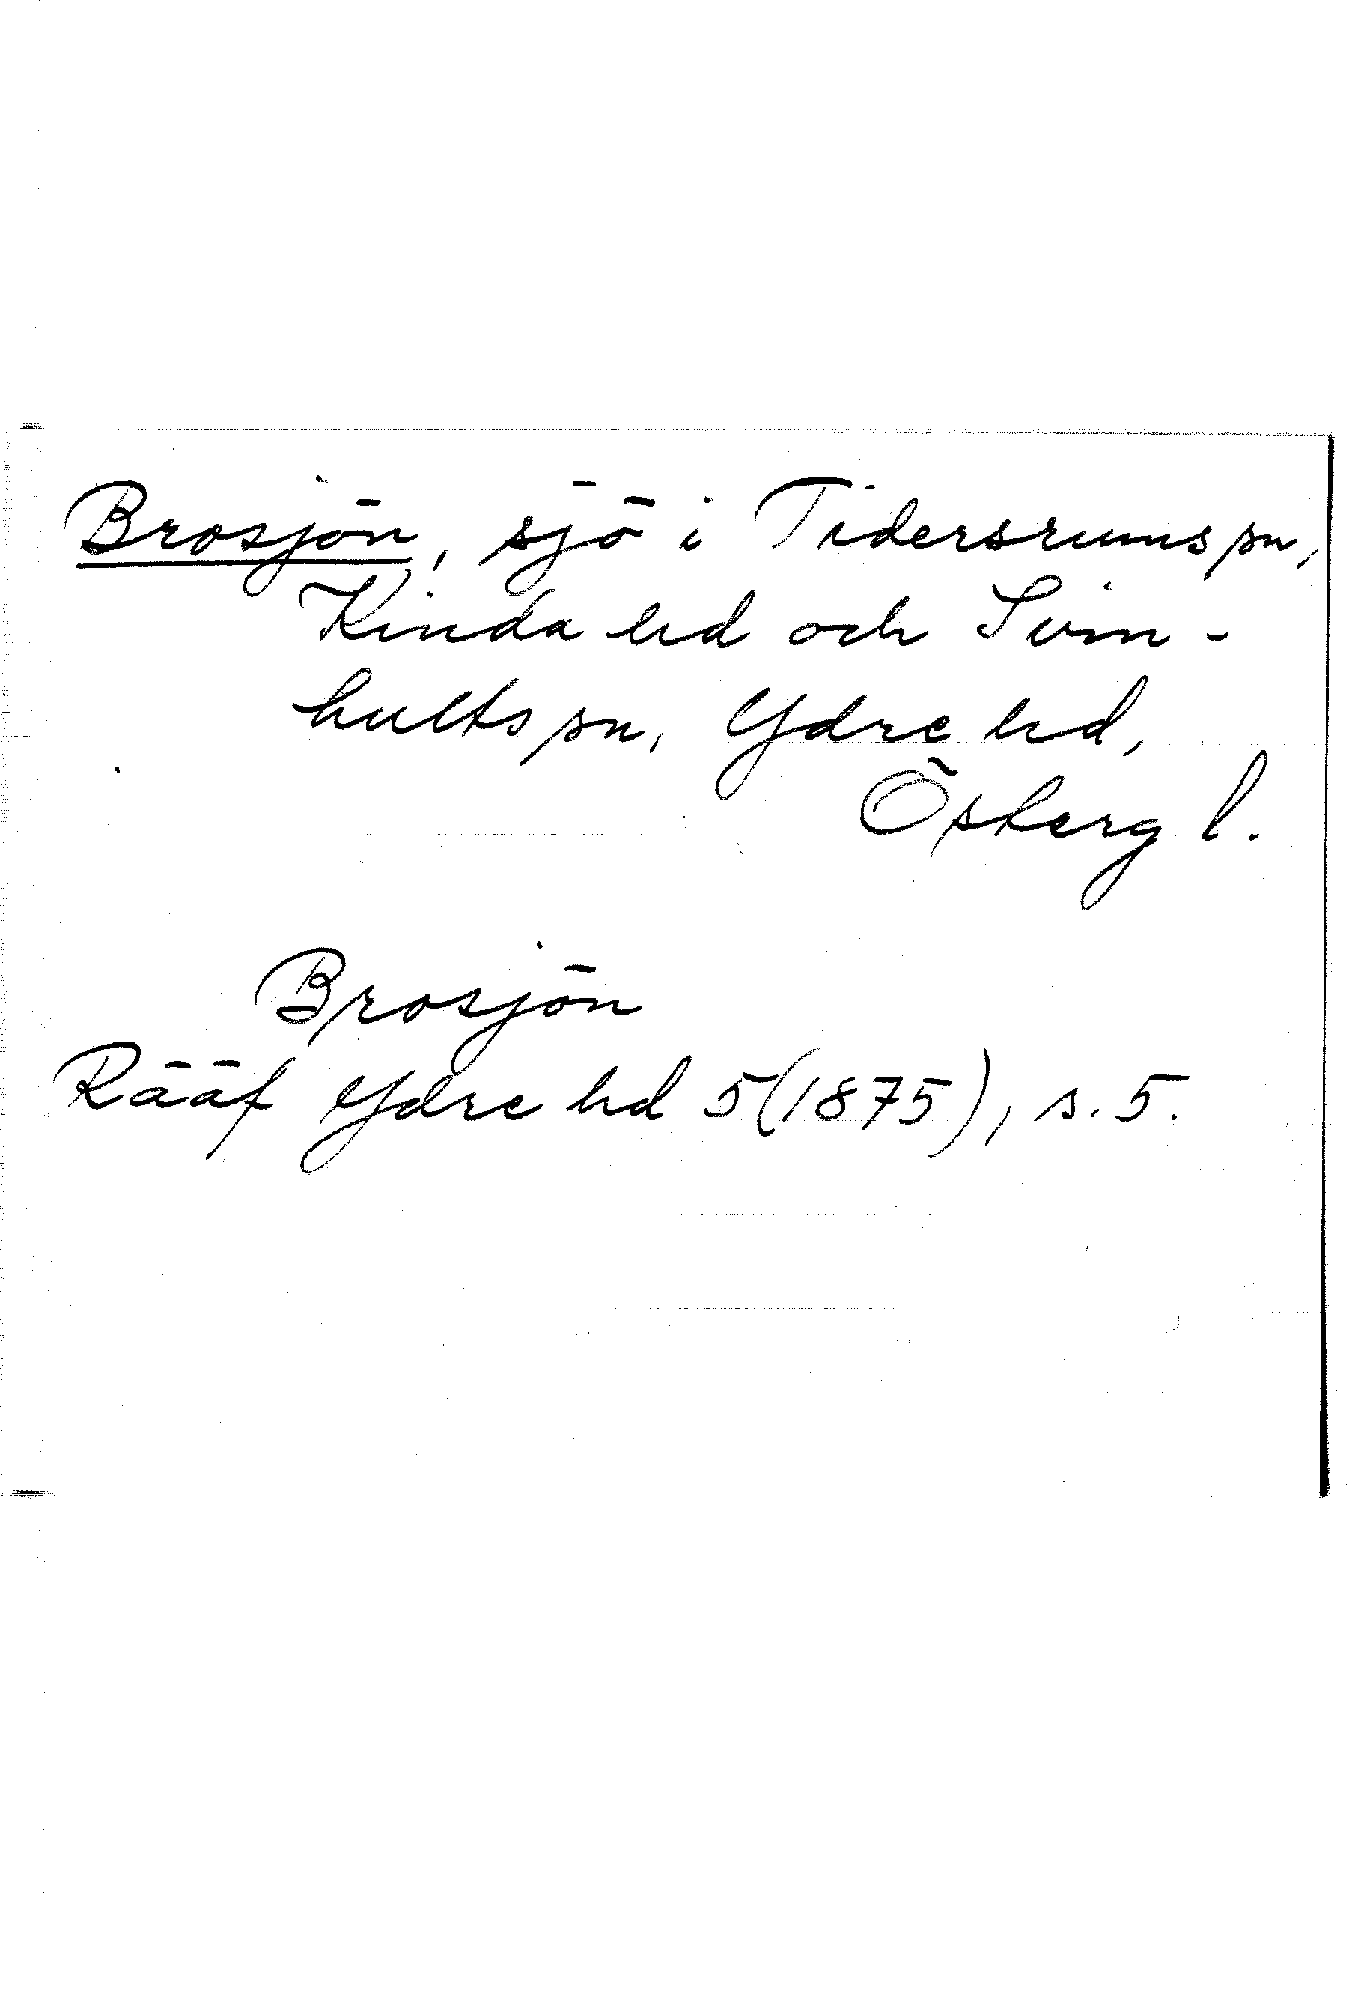 Brosjön, sjö i Tidersrums sn,
Kinda hd och Svin-
hults sn, Ydre hd,
Östergl.
Brosjön
Rääf Ydre hd 5(1875), s. 5.